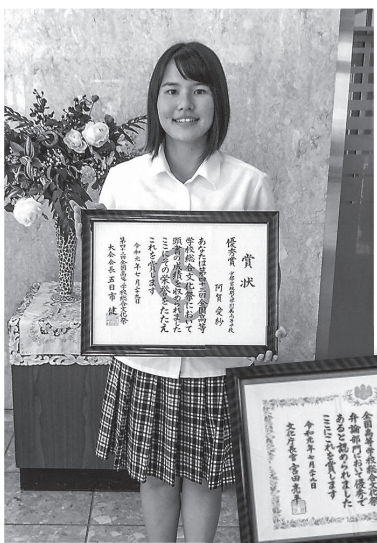 賞状
優秀賞
阿賀愛紗
あなたは第四十三回全国高等
学校総合文化祭において
頭書の成績を収められました
ここにその栄誉をたたえ
これを賞します
令和元年七月二十九日
第四十三回全国高等学校総合文化祭
大会会長 五日市 健
全国高等学校総合文化祭
弁論部門において優秀で
あると認められました
ここにこれを賞します
令和元年七月二十九日
文化庁長官 宮田亮平